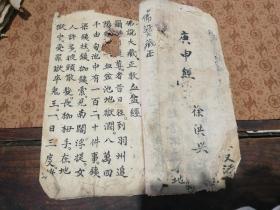 佛說大藏正教血盆經
爾時目連尊者昔日往到羽州追
陽縣見一血盆池地獄濶八萬四
千由旬池中有一百二十件事鐵
梁鐵柱鐵枷鐵索見南閻浮提女
人許多披頭散髮長枷杻手在地
獄中受罪獄卒鬼王一日三度將
佛說大藏正
庚申經
徐洪興